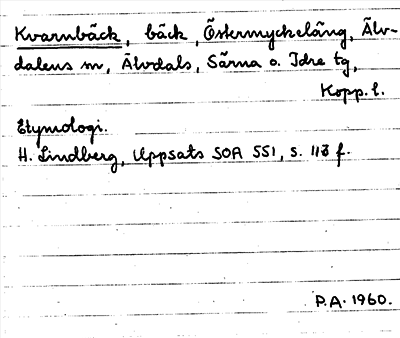 Kvarnbäck, bäck, Östermyckeläng, Älv-
dalens sn, Älvdals, Särna o. Idre tg,
Kopp. l.
Etymologi.
H. Lindberg, Uppsats SOA 551, s. 113 f.
P.A. 1960.